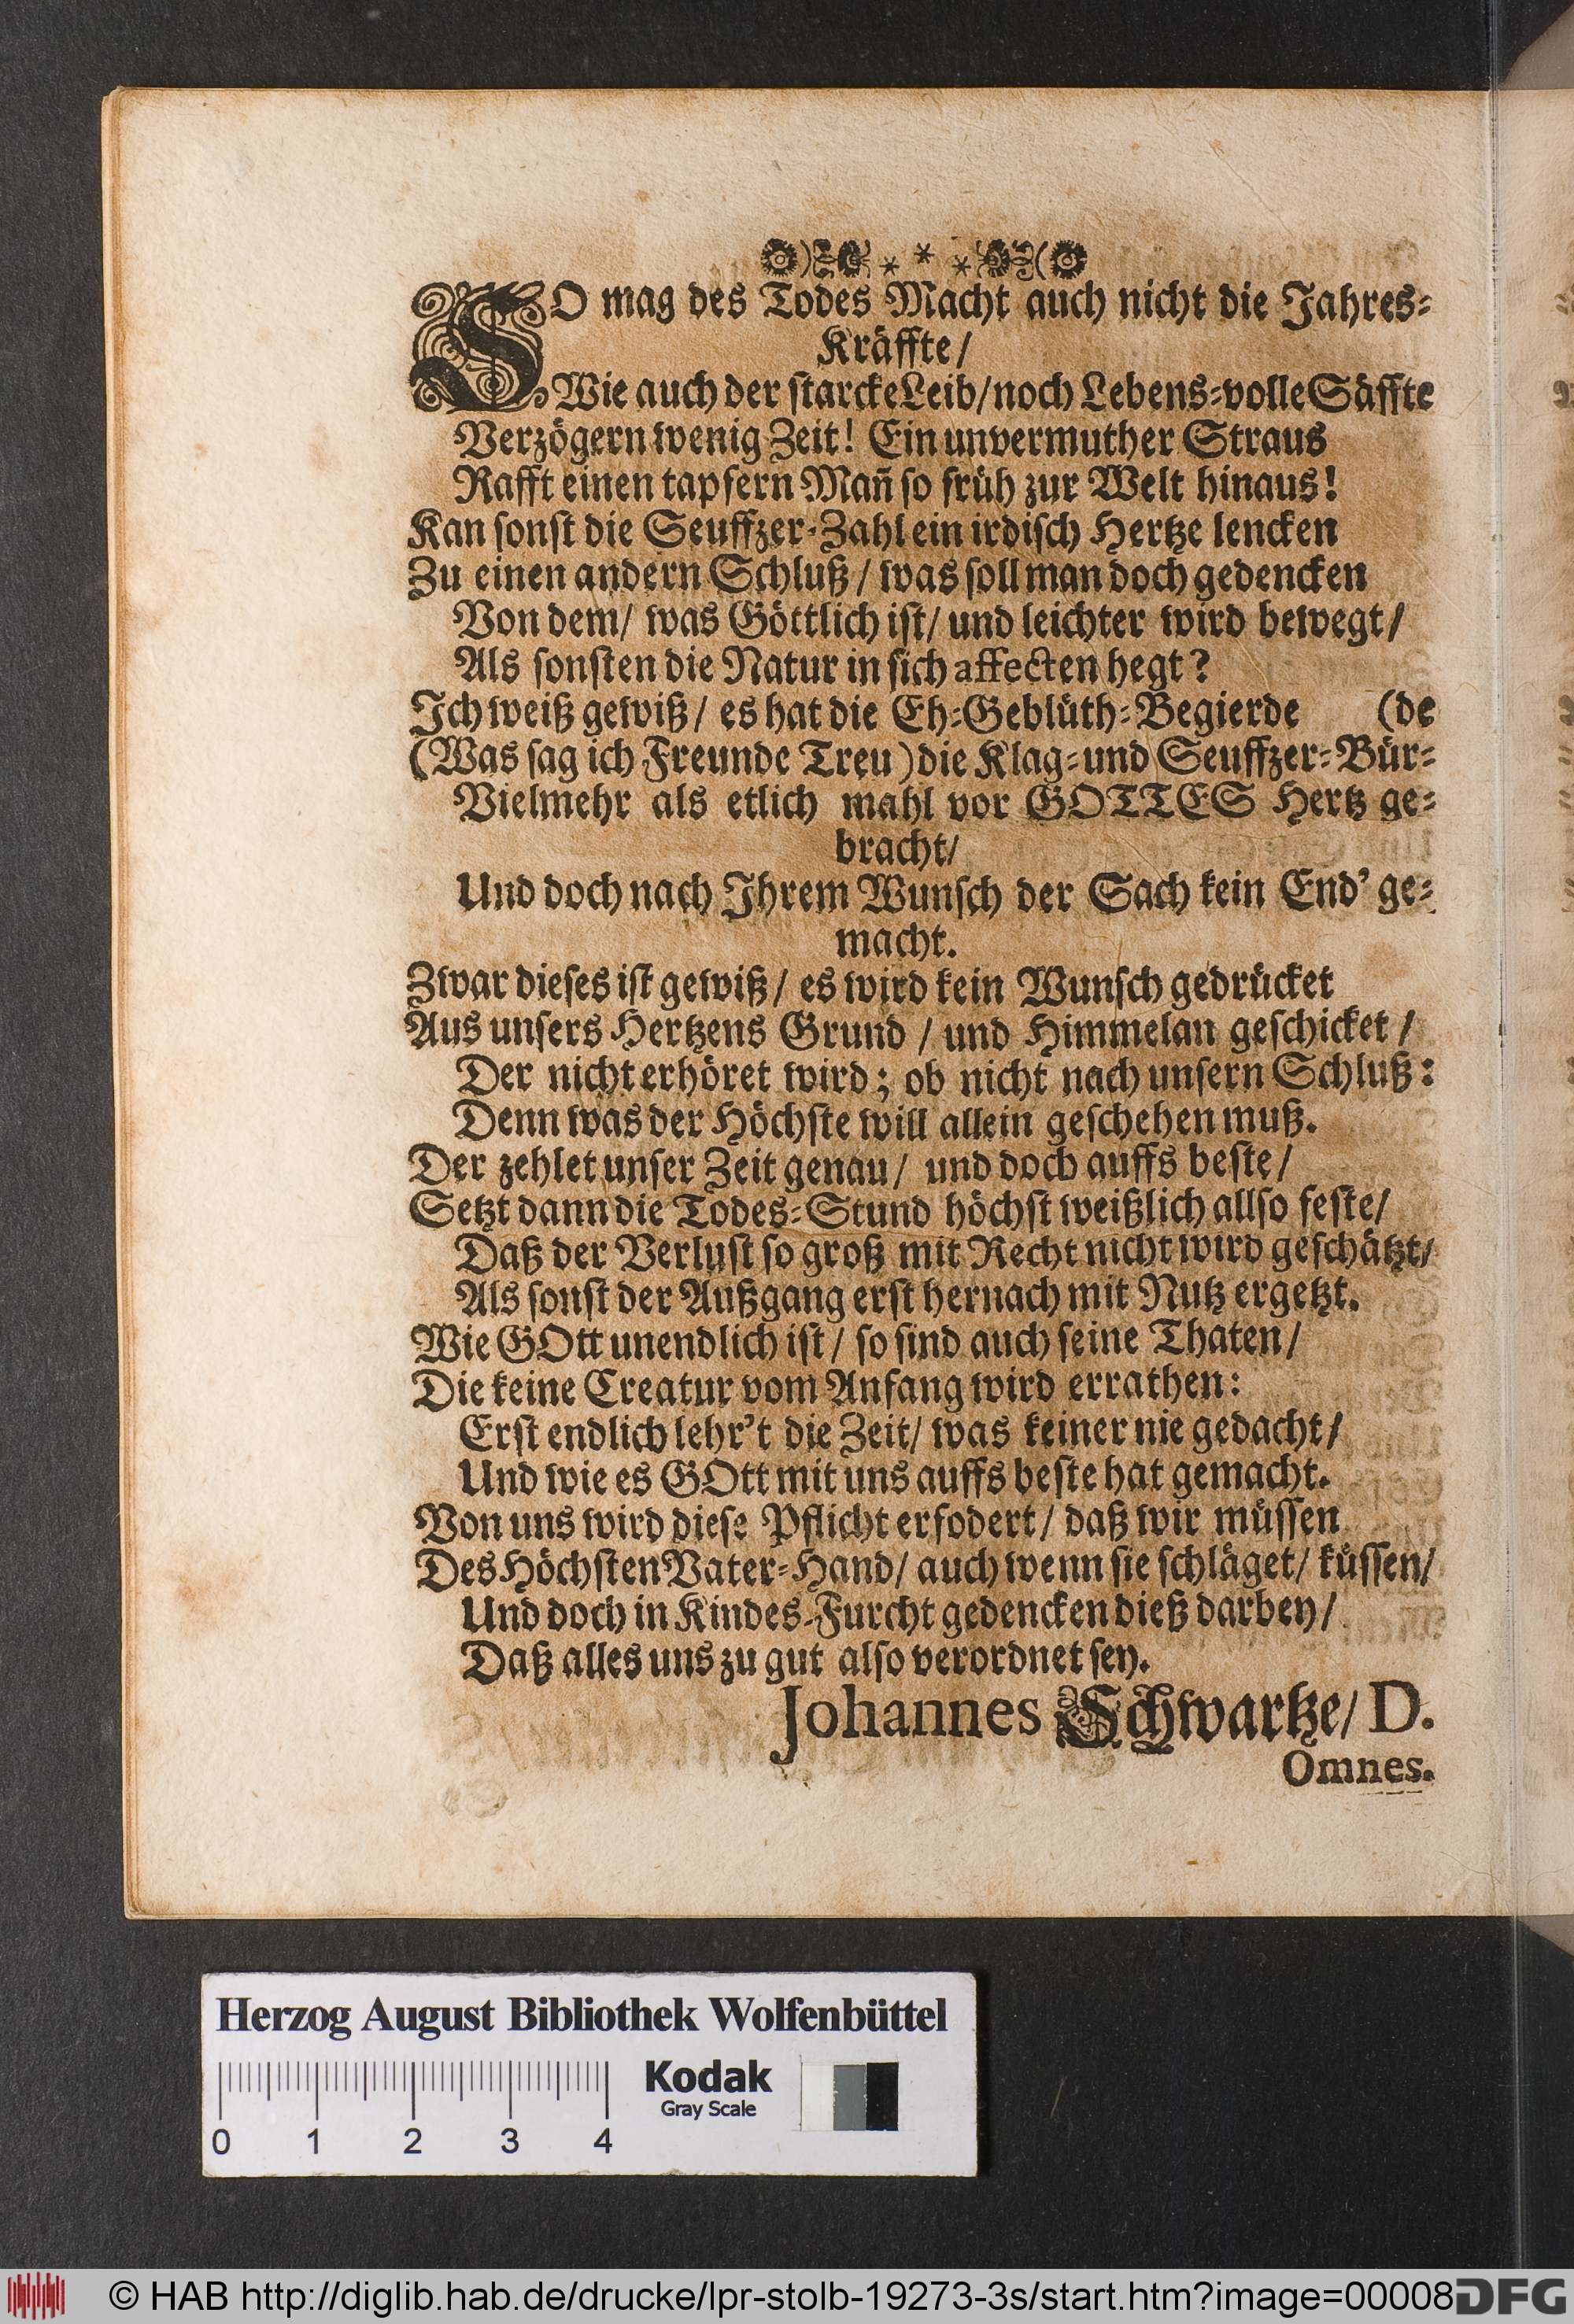 SO mag des Todes Macht auch nicht die Jahres-
Kräffte/
Wie auch der starcke Leib/ noch Lebens-volle Säffte
Verzögern wenig Zeit! Ein unvermuther Straus
Rafft einen tapfern Mañ so früh zur Welt hinaus!
Kan sonst die Seuffzer-Zahl ein irdisch Hertze lencken
Zu einen andern Schluß/ was soll man doch gedencken
Von dem/ was Göttlich ist/ und leichter wird bewegt/
Als sonsten die Natur in sich affecten hegt?
Ich weiß gewiß/ es hat die Eh-Geblüth-Begierde (de
(Was sag ich Freunde Treu) die Klag-und Seuffzer-Bür-
Vielmehr als etlich mahl vor GOTTES Hertz ge-
bracht/
Und doch nach Ihrem Wunsch der Sach kein End' ge-
macht.
Zwar dieses ist gewiß/ es wird kein Wunsch gedrücket
Aus unsers Hertzens Grund / und Himmelan geschicket /
Der nicht erhöret wird; ob nicht nach unsern Schluß:
Denn was der Höchste will allein geschehen muß.
Der zehlet unser Zeit genau/ und doch auffs beste/
Setzt dann die Todes-Stund höchst weißlich allso feste/
Daß der Verlust so groß mit Recht nicht wird geschätzt/
Als sonst der Außgang erst hernach mit Nutz ergetzt.
Wie GOtt unendlich ist/ so sind auch seine Thaten/
Die keine Creatur vom Anfang wird errathen:
Erst endlich lehr't die Zeit/ was keiner nie gedacht/
Und wie es GOtt mit uns auffs beste hat gemacht.
Von uns wird diese Pflicht erfodert/ daß wir müssen
Des Höchsten Vater-Hand/ auch wenn sie schläget/ küssen/
Und doch in Kindes-Furcht gedencken dieß darbey/
Daß alles uns zu gut also verordnet sey.
Johannes Schwartze/ D.
Omnes.
Herzog August Bibliothek Wolfenbüttel
Kodak
Gray Scale
0 1 2 3 4
© HAB http://diglib.hab.de/drucke/lpr-stolb-19273-3s/start.htm?image=00008
DFG